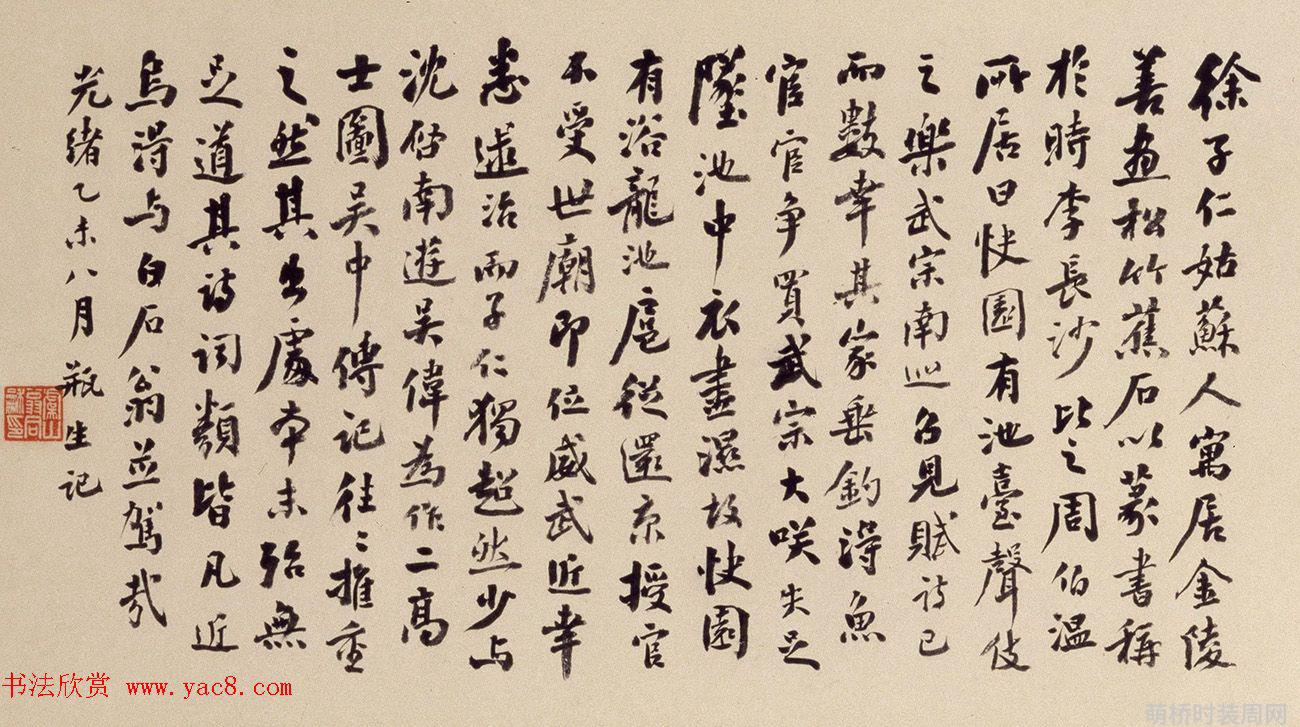 徐子仁姑蘇人寓居金陵
善畫松竹蕉石以篆書稱
於時李長沙比之周伯溫
所居曰快園有池臺聲伎
之樂武宗南巡召見賦詩已
而數幸其家垂釣得魚
宦官爭買武宗大咲失足
墜池中衣盡濕故快園
有浴龍池扈從還京授官
不受世廟即位威武近幸
悉逮治而子仁獨超然少与
沈啓南遊吳偉為作二高
士圖吳中傳記往〻推重
之然其出處本末殆無
足道其詩詞類皆凡近
烏得与白石翁並駕哉
光緒乙未八月瓶生記
虞山翁同龢印
书法欣赏 www.yac8.com
萌桥时装周网